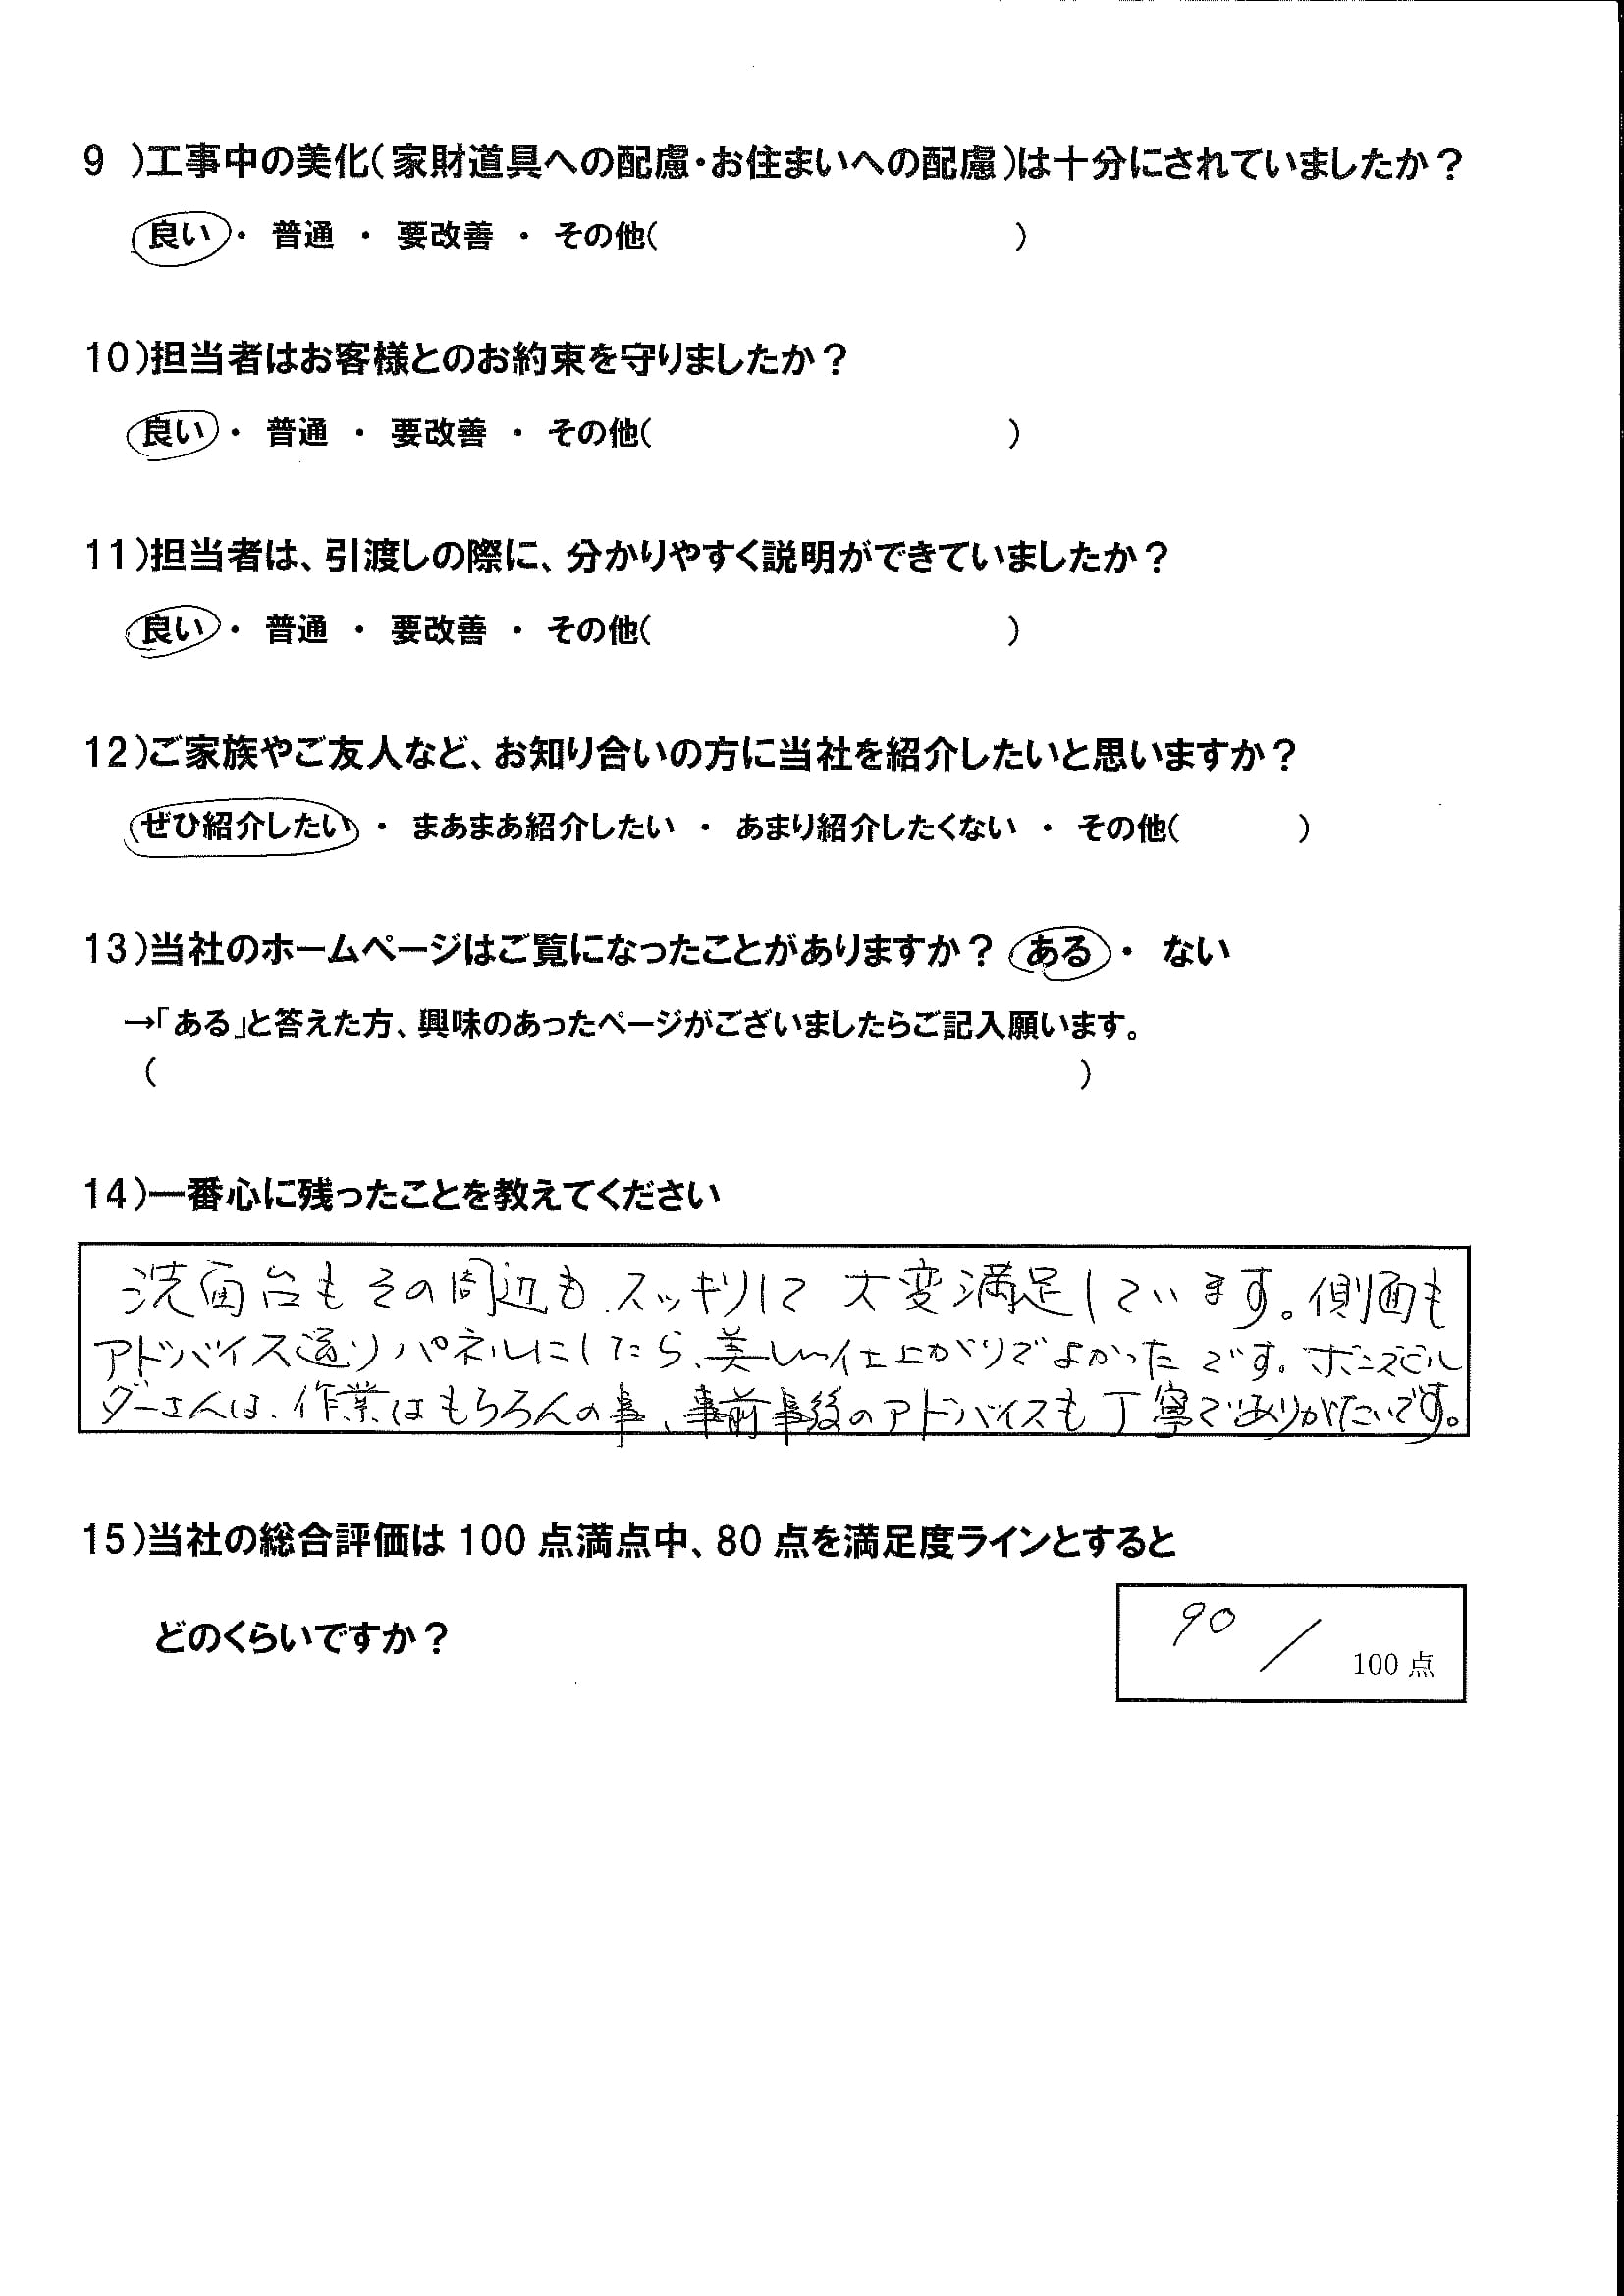 9 )工事中の美化(家財道具への配慮・お住まいへの配慮)は十分にされていましたか？
良い・ 普通 ・ 要改善 ・ その他( )
10)担当者はお客様とのお約束を守りましたか？
良い・ 普通 ・ 要改善 ・ その他( )
11)担当者は、引渡しの際に、分かりやすく説明ができていましたか？
良い・ 普通 ・ 要改善 ・ その他( )
12)ご家族やご友人など、お知り合いの方に当社を紹介したいと思いますか？
ぜひ紹介したい ・ まあまあ紹介したい ・ あまり紹介したくない ・ その他( )
13)当社のホームページはご覧になったことがありますか？ ある・ ない
→「ある」と答えた方、興味のあったページがございましたらご記入願います。
( )
14)一番心に残ったことを教えてください
洗面台もその周辺も、スッキリして 大変満足しています。側面も
アドバイス通りパネルにしたら、美しい仕上がりでよかったです。ボンズビル
ダーさんは、作業はもちろんの事、事前事後のアドバイスも丁寧でありがたいです。
15)当社の総合評価は 100 点満点中、80 点を満足度ラインとすると
どのくらいですか？
90 / 100 点